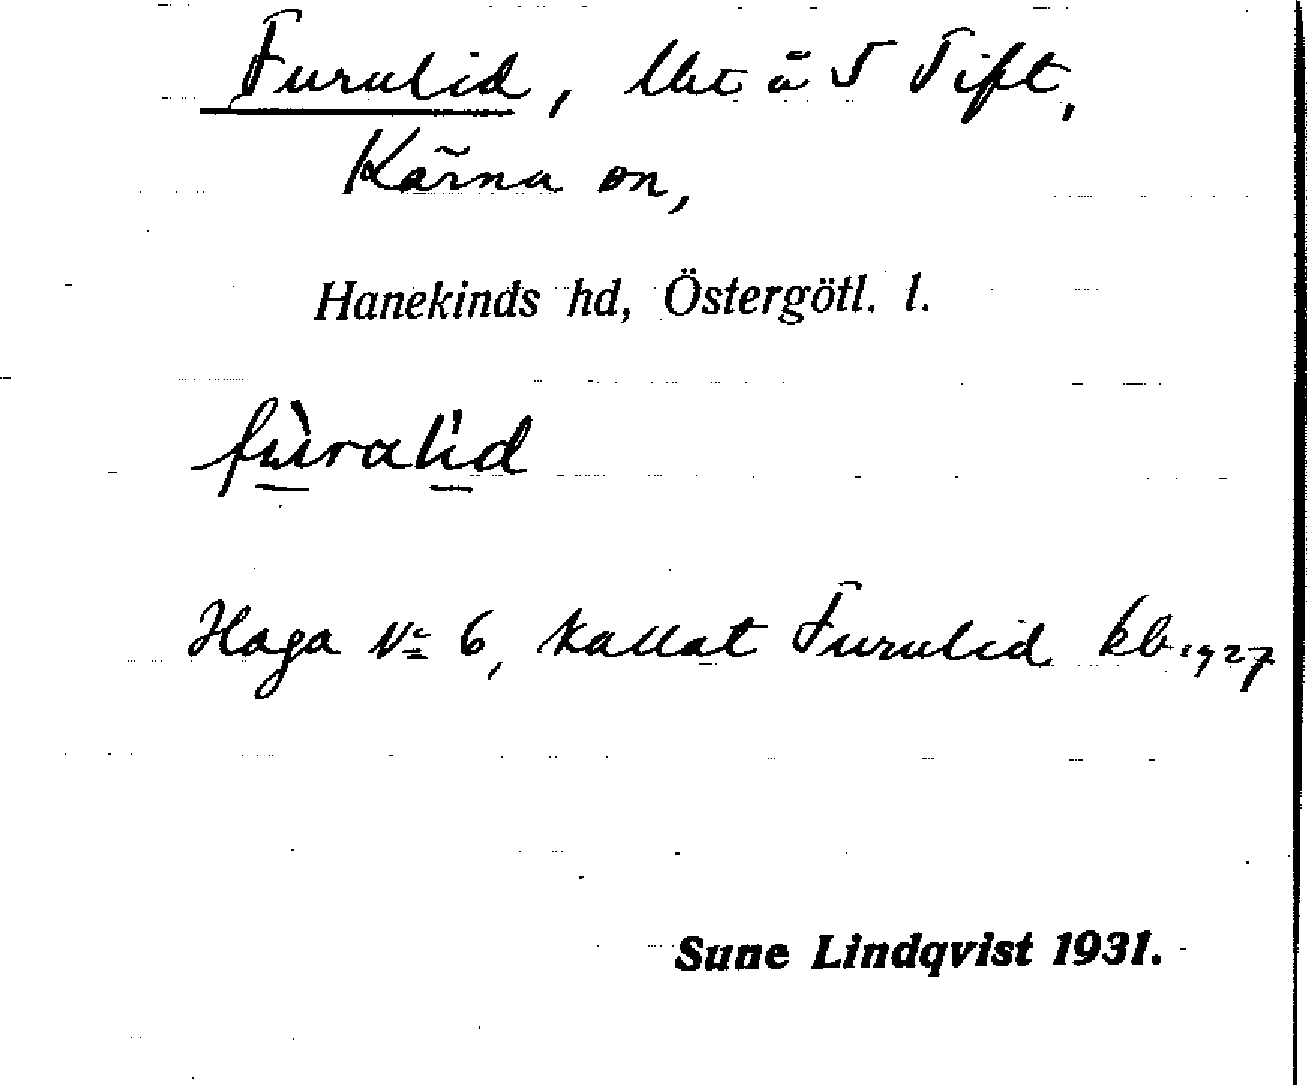 Furulid, lht å S Tift,
Kärna sn,
Hanekinds hd, Östergötl. l.
fùralìd
Haga No 6, kallat Furulid kb. 1927
Sune Lindqvist 1931.